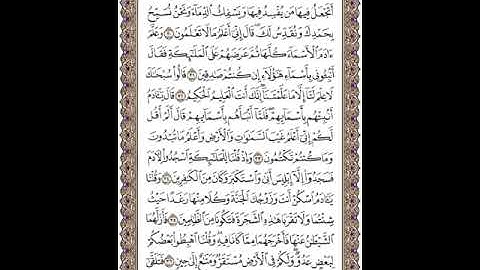 أَتَجْعَلُ فِيهَا مَن يُفْسِدُ فِيهَا وَيَسْفِكُ الدِّمَاءَ وَنَحْنُ نُسَبِّحُ
بِحَمْدِكَ وَنُقَدِّسُ لَكَ قَالَ إِنِّي أَعْلَمُ مَا لَا تَعْلَمُونَ ٣٠ وَعَلَّمَ
ءَادَمَ الْأَسْمَاءَ كُلَّهَا ثُمَّ عَرَضَهُمْ عَلَى الْمَلَٰئِكَةِ فَقَالَ
أَنبِئُونِي بِأَسْمَاءِ هَٰؤُلَاءِ إِن كُنتُمْ صَٰدِقِينَ ٣١ قَالُوا سُبْحَٰنَكَ
لَا عِلْمَ لَنَا إِلَّا مَا عَلَّمْتَنَا إِنَّكَ أَنتَ الْعَلِيمُ الْحَكِيمُ ٣٢ قَالَ يَٰـَٔادَمُ
أَنبِئْهُم بِأَسْمَائِهِمْ فَلَمَّا أَنبَأَهُم بِأَسْمَائِهِمْ قَالَ أَلَمْ أَقُل
لَّكُمْ إِنِّي أَعْلَمُ غَيْبَ السَّمَٰوَٰتِ وَالْأَرْضِ وَأَعْلَمُ مَا تُبْدُونَ
وَمَا كُنتُمْ تَكْتُمُونَ ٣٣ وَإِذْ قُلْنَا لِلْمَلَٰئِكَةِ اسْجُدُوا لِءَادَمَ
فَسَجَدُوا إِلَّا إِبْلِيسَ أَبَىٰ وَاسْتَكْبَرَ وَكَانَ مِنَ الْكَٰفِرِينَ ٣٤ وَقُلْنَا
يَٰـَٔادَمُ اسْكُنْ أَنتَ وَزَوْجُكَ الْجَنَّةَ وَكُلَا مِنْهَا رَغَدًا حَيْثُ
شِئْتُمَا وَلَا تَقْرَبَا هَٰذِهِ الشَّجَرَةَ فَتَكُونَا مِنَ الظَّٰلِمِينَ ٣٥ فَأَزَلَّهُمَا
الشَّيْطَٰنُ عَنْهَا فَأَخْرَجَهُمَا مِمَّا كَانَا فِيهِ وَقُلْنَا اهْبِطُوا بَعْضُكُمْ
لِبَعْضٍ عَدُوٌّ وَلَكُمْ فِي الْأَرْضِ مُسْتَقَرٌّ وَمَتَٰعٌ إِلَىٰ حِينٍ ٣٦ فَتَلَقَّىٰ